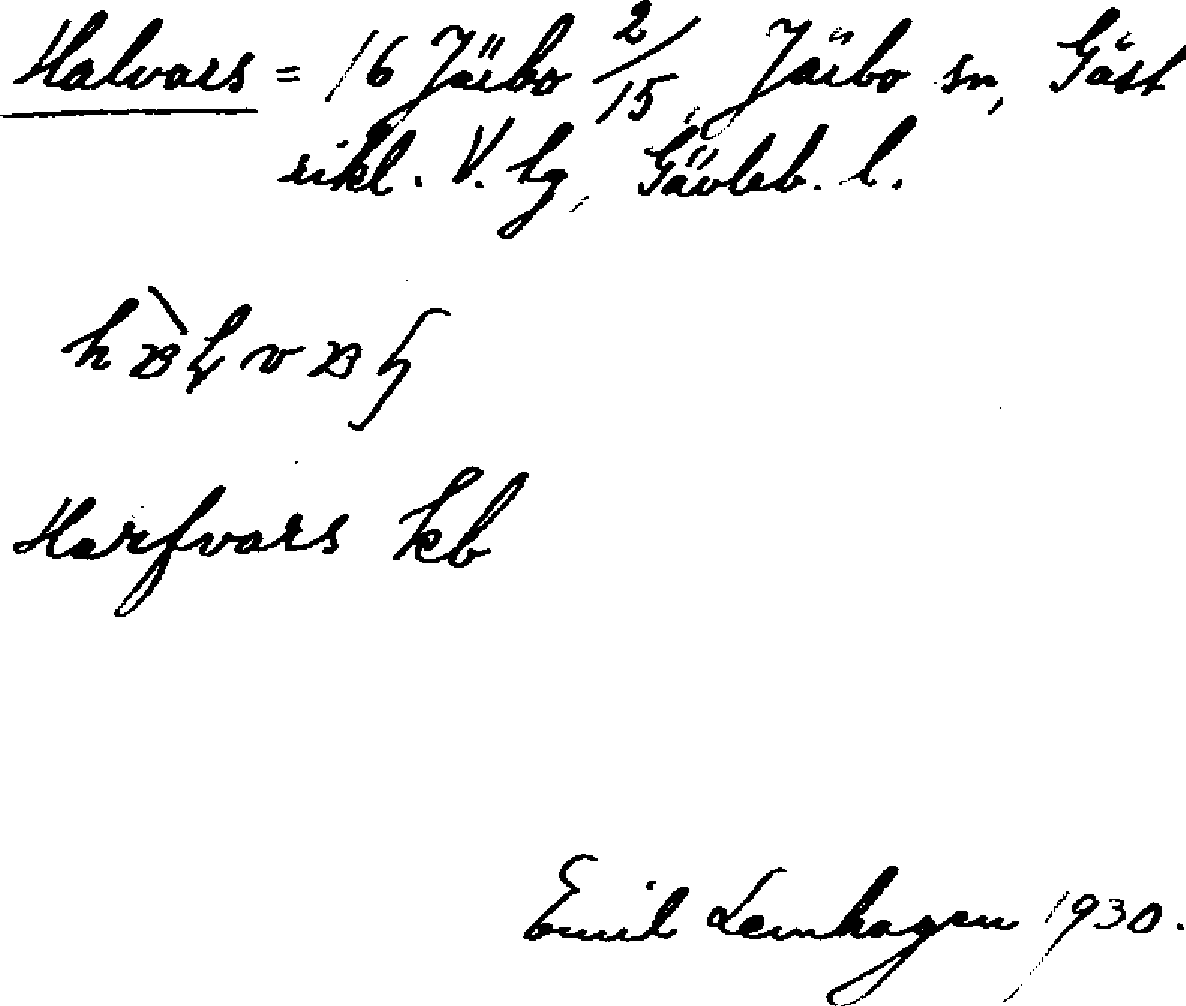 Halvars = 16 Järbo 2/15, Järbo sn, Gäst
rikl. V. hg, Gävleb. l.
Harfvars kb
Emil Lemhagen 1930.